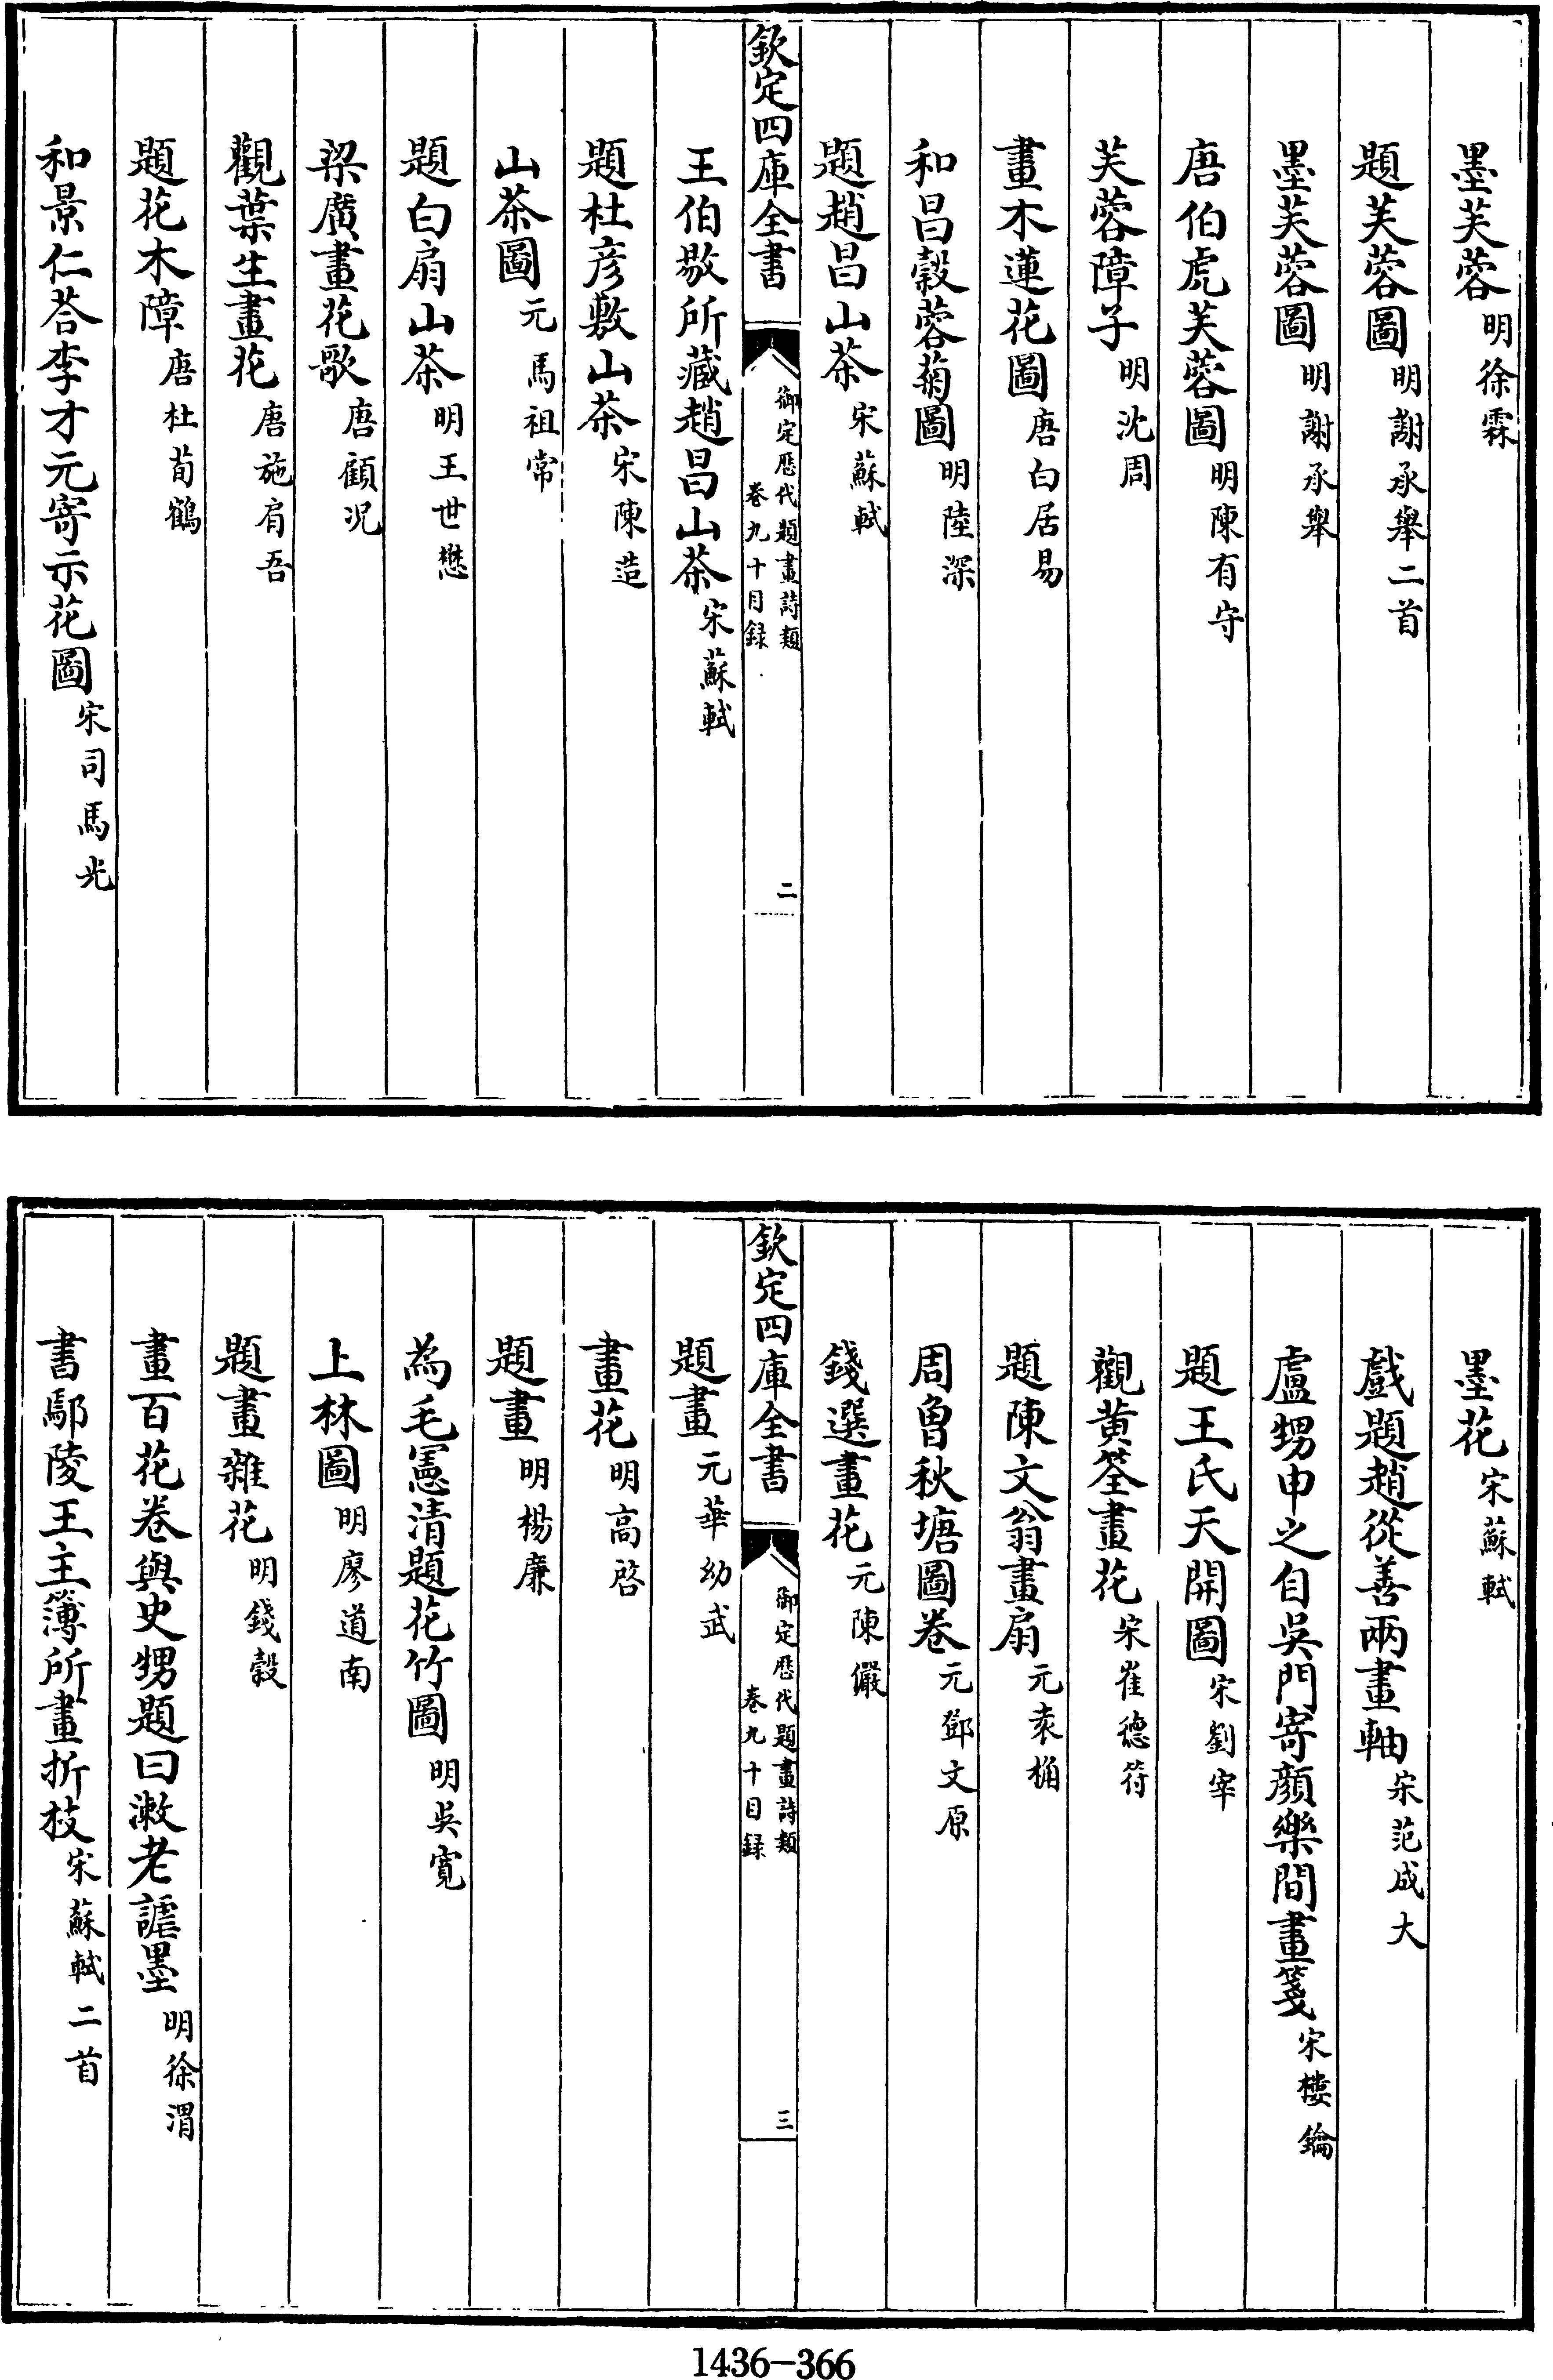 墨芙蓉明徐霖
題芙蓉圖明謝承舉二首
墨芙蓉圖明謝承舉
唐伯虎芙蓉圖明陳有守
芙蓉障子明沈周
畫木蓮花圖唐白居易
和昌穀蓉菊圖明陸深
題趙昌山茶宋蘇軾
欽定四庫全書
御定歷代題畫詩類
卷九十目録
二
王伯敭所藏趙昌山茶宋蘇軾
題杜彥敷山茶宋陳造
山茶圖元馬祖常
題白扇山茶明王世懋
梁廣畫花歌唐顧况
觀葉生畫花唐施肩吾
題花木障唐杜荀鶴
和景仁荅李才元寄示花圖宋司馬光
墨花宋蘇軾
戲題趙從善兩畫軸宋范成大
盧甥申之自吳門寄顏樂間畫箋宋樓鑰
題王氏天開圖宋劉宰
觀黄筌畫花宋崔德符
題陳文翁畫扇元袁桷
周曾秋塘圖卷元鄧文原
錢選畫花元陳儼
欽定四庫全書
御定歷代題畫詩類
卷九十目録
三
題畫元華幼武
畫花明高啓
題畫明楊廉
為毛憲清題花竹圖明吳寬
上林圖明廖道南
題畫雜花明錢穀
畫百花卷與史甥題曰漱老謔墨明徐渭
書鄢陵王主簿所畫折枝宋蘇軾二首
1436-366